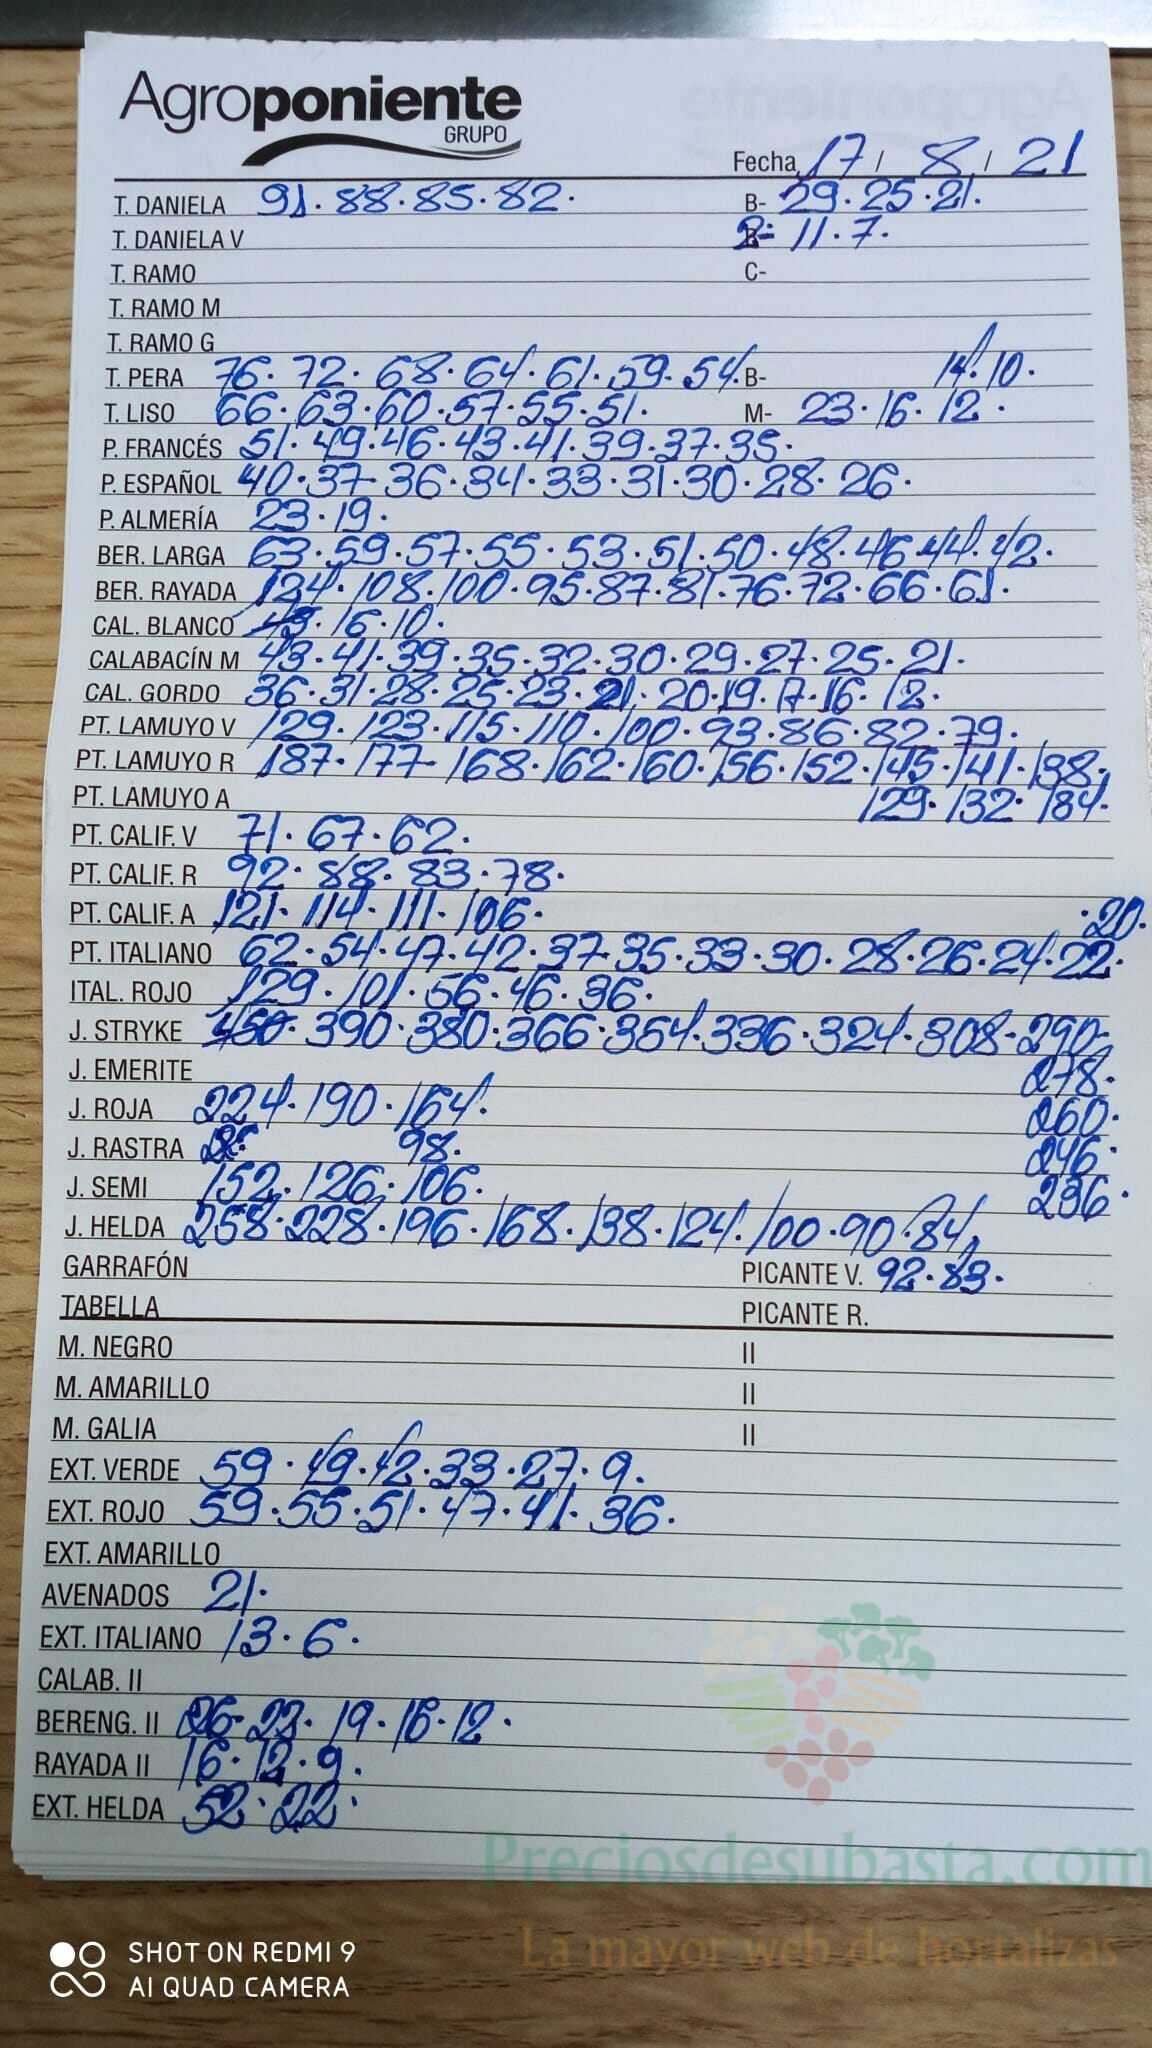 Agroponiente
GRUPO
Fecha 17 / 8 / 21
T. DANIELA 91. 88. 85. 82. B- 29. 25. 21.
T. DANIELA V 2= 11. 7.
T. RAMO C-
T. RAMO M
T. RAMO G
T. PERA 76. 72. 68. 64. 61. 59. 54. B- 14. 10.
T. LISO 66. 63. 60. 57. 55. 51. M- 23. 16. 12.
P. FRANCÉS 51. 49. 46. 43. 41. 39. 37. 35.
P. ESPAÑOL 40. 37. 36. 34. 33. 31. 30. 28. 26.
P. ALMERÍA 23. 19.
BER. LARGA 63. 59. 57. 55. 53. 51. 50. 48. 46. 44. 42.
BER. RAYADA 124. 108. 100. 95. 87. 81. 76. 72. 66. 61.
CAL. BLANCO 16. 10.
CALABACÍN M 43. 41. 39. 35. 32. 30. 29. 27. 25. 21.
CAL. GORDO 36. 31. 28. 25. 23. 21. 20. 19. 17. 16. 12.
PT. LAMUYO V 129. 123. 115. 110. 100. 93. 86. 82. 79.
PT. LAMUYO R 187. 177. 168. 162. 160. 156. 152. 145. 141. 138.
PT. LAMUYO A 129. 132. 184.
PT. CALIF. V 71. 67. 62.
PT. CALIF. R 92. 88. 83. 78.
PT. CALIF. A 121. 114. 111. 106. .20.
PT. ITALIANO 62. 54. 47. 42. 37. 35. 33. 30. 28. 26. 24. 22.
ITAL. ROJO 129. 101. 56. 46. 36.
J. STRYKE 450. 390. 380. 366. 354. 336. 324. 308. 290.
J. EMERITE 278.
J. ROJA 224. 190. 164. 260.
J. RASTRA 98. 246.
J. SEMI 152. 126. 106. 236.
J. HELDA 258. 228. 196. 168. 138. 124. 100. 90. 84.
GARRAFÓN PICANTE V. 92. 83.
TABELLA PICANTE R.
M. NEGRO II
M. AMARILLO II
M. GALIA II
EXT. VERDE 59. 49. 42. 33. 27. 9.
EXT. ROJO 59. 55. 51. 47. 41. 36.
EXT. AMARILLO
AVENADOS 21.
EXT. ITALIANO 13. 6.
CALAB. II
BERENG. II 26. 23. 19. 16. 12.
RAYADA II 16. 12. 9.
EXT. HELDA 52. 22.
Preciosdesubasta.com
La mayor web de hortalizas
SHOT ON REDMI 9
AI QUAD CAMERA